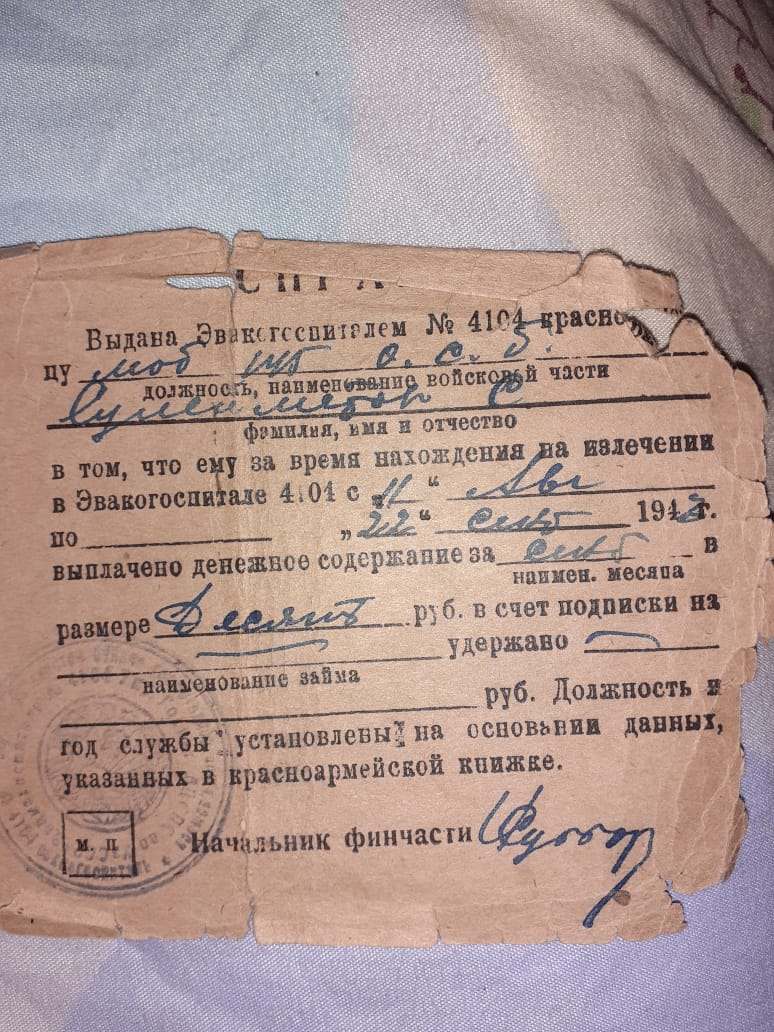 СПРА
Выдана Эвакогоспиталем № 4104 красно
цу о. с. б.
должность, наименование войсковой части
С
фамилия, имя и отчество
в том, что ему за время нахождения на излечении
в Эвакогоспитале 4104 с „11“ Авг
по „22“ сент 194 г.
выплачено денежное содержание за сент в
наимен. месяца
размере Десять руб. в счет подписки на
удержано
наименование займа
руб. Должность и
год службы установлены на основании данных,
указанных в красноармейской книжке.
м. п Начальник финчасти